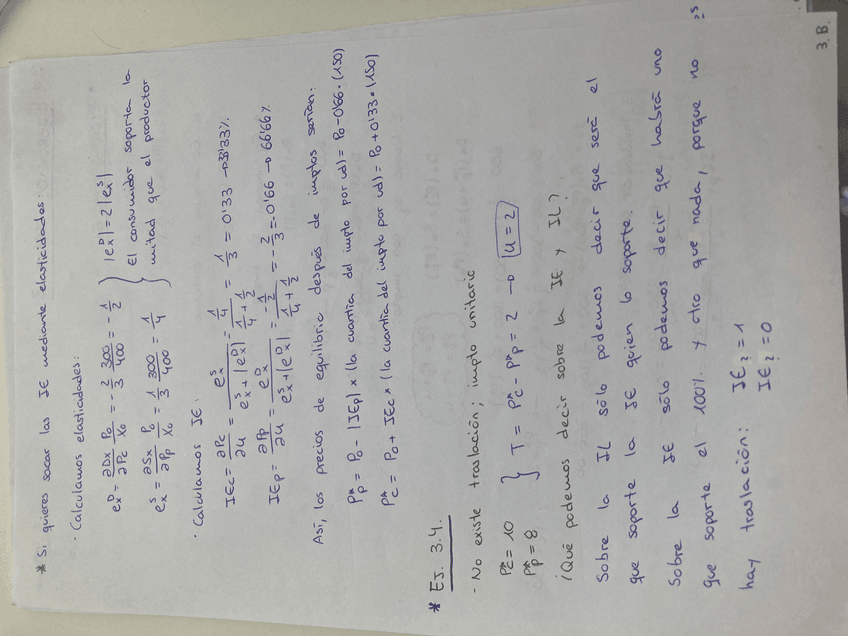 * Si quieres sacar las IE mediante elasticidades:
· Calculamos elasticidades:
e_x^D = ∂Dx/∂Pc P0/X0 = -2/3 300/400 = -1/2 } |e_x^D| = 2|e_x^S|
e_x^S = ∂Sx/∂Pp P0/X0 = 1/3 300/400 = 1/4 } El consumidor soporta la mitad que el productor
· Calculamos IE:
IEc = ∂Pc/∂u = e_x^S / (e_x^S + |e_x^D|) = (1/4) / (1/4 + 1/2) = 1/3 = 0'33 → 33'33%
IEp = ∂Pp/∂u = e_x^D / (e_x^S + |e_x^D|) = (-1/2) / (1/4 + 1/2) = -2/3 = -0'66 → 66'66%
Así, los precios de equilibrio después de imptos serían:
P*p = P0 - |IEp| x (la cuantía del impto por ud) = P0 - 0'66 · (150)
P*c = P0 + IEc x (la cuantía del impto por ud) = P0 + 0'33 · (150)
* EJ. 3.4.
- No existe traslación; impto unitario
P*c = 10
P*p = 8 } T = P*c - P*p = 2 → u = 2
¿Qué podemos decir sobre la IE y IL?
Sobre la IL sólo podemos decir que será el
que soporte la IE quien lo soporte.
Sobre la IE sólo podemos decir que habrá uno
que soporte el 100% y otro que nada, porque no es
hay traslación: IE? = 1
IE? = 0
3.B.